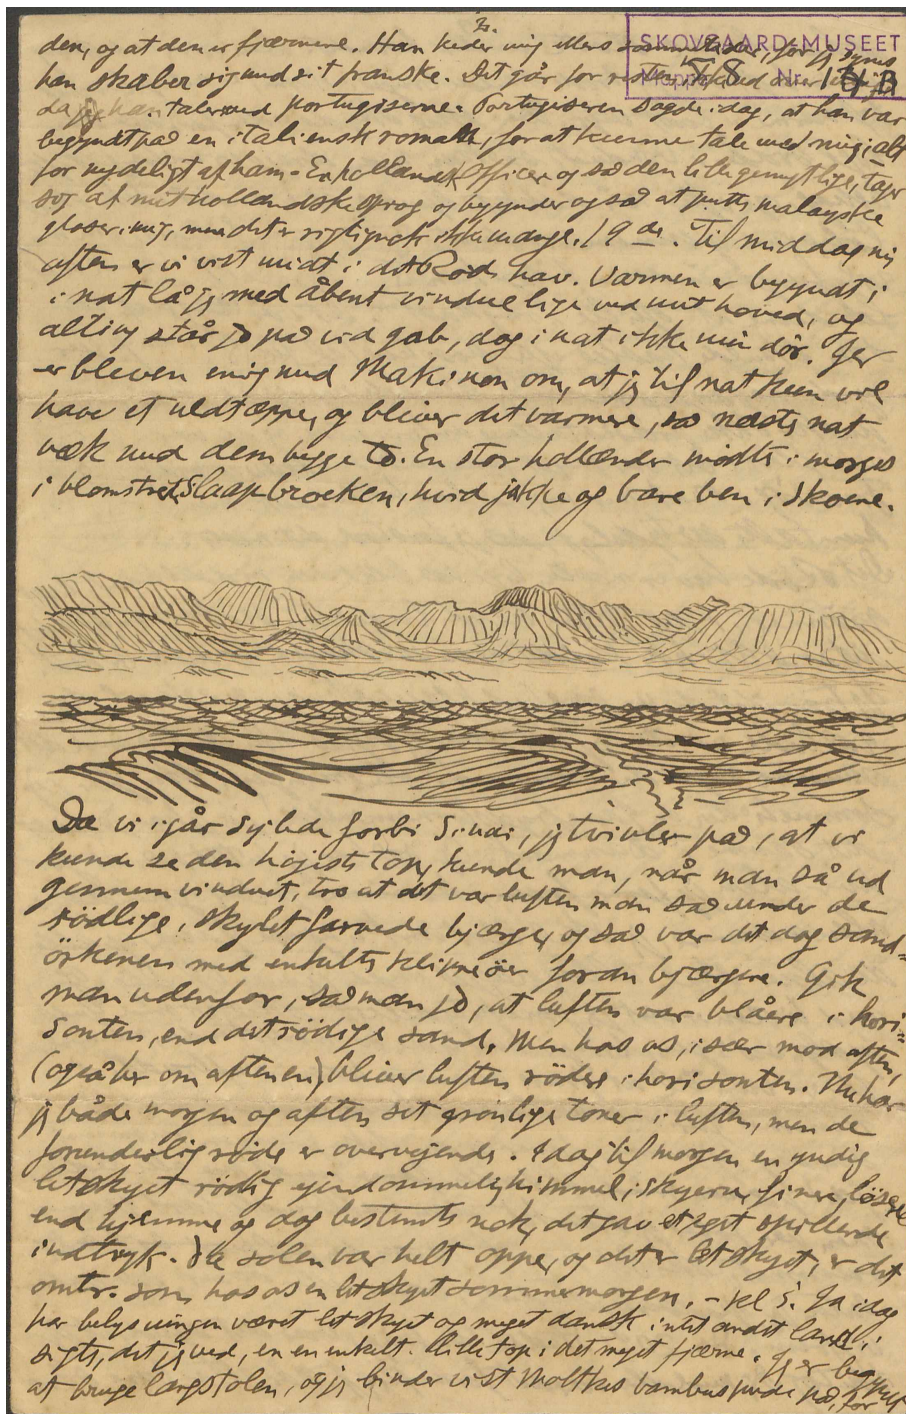 3.
SKOVGAARD-MUSEET
Mappe 58 Nr. 14B
den, og at den er fjærnere. Han keder mig ellers
han skaber sig med sit franske. Det går for resten
da han taler med portugiserne. Portugiseren sagde idag, at han var
begyndt på en italiensk roman, for at kunne tale med mig, alt
for nydeligt af ham. En hollandsk Officer og så den lille gemytlige, tager
sig af mit hollandske sprog og begynder også at putte malayske
gloser i mig, men det er rigtignok ikke mange. 19de. Til middag
aften er vi vist midt i det Røde hav. Varmen er begyndt,
i nat lå jeg med åbent vindue lige ved mit hoved, og
alting står jo på vid gab, dog i nat ikke min dör. Jeg
er bleven enig med Makinon om, at jeg til nat kun vil
have et uldtæppe, og bliver det varmere, så næste nat
væk med dem begge to. En stor hollænder mødte i morges
i blomstret Slaapbroeken, hvid jakke og bare ben i skoene.
Da vi igår sejlede forbi Sinai, jeg tvivler på, at vi
kunde se den højeste top, kunde man, når man så ud
gennem vinduet, tro at det var luften man så under de
rödlige, skyletfarvede bjærge, og så var det dog sand=
örkenen med enkelte klippeöer foran bjærgene. Gik
man udenfor, så man jo, at luften var blåere i hori=
sonten, end det rödlige sand. Men hos os, især mod aften,
(også her om aftenen), bliver luften rödere i horisonten. Nu har
jeg både morgen og aften set grønlige toner i luften, men de
forunderlig røde er overvejende. Idag til morgen en yndig
letskyet rödlig ejendommelig himmel, skyerne finere, lösere
end hjemme og dog bestemte nok, det gav et eget spillende
indtryk. Da solen var helt oppe, og det er letskyet, er det
omtr. som hos os en letskyet sommermorgen. – Kl 5. Ja idag
har belysningen været letskyet og meget dansk, intet andet land i
sigte, det jeg ved, en en enkelt lille top i det meget fjærne. Jeg er begyndt
at bruge længstolen, og jeg binder vist Moltkes bambuspude på, for